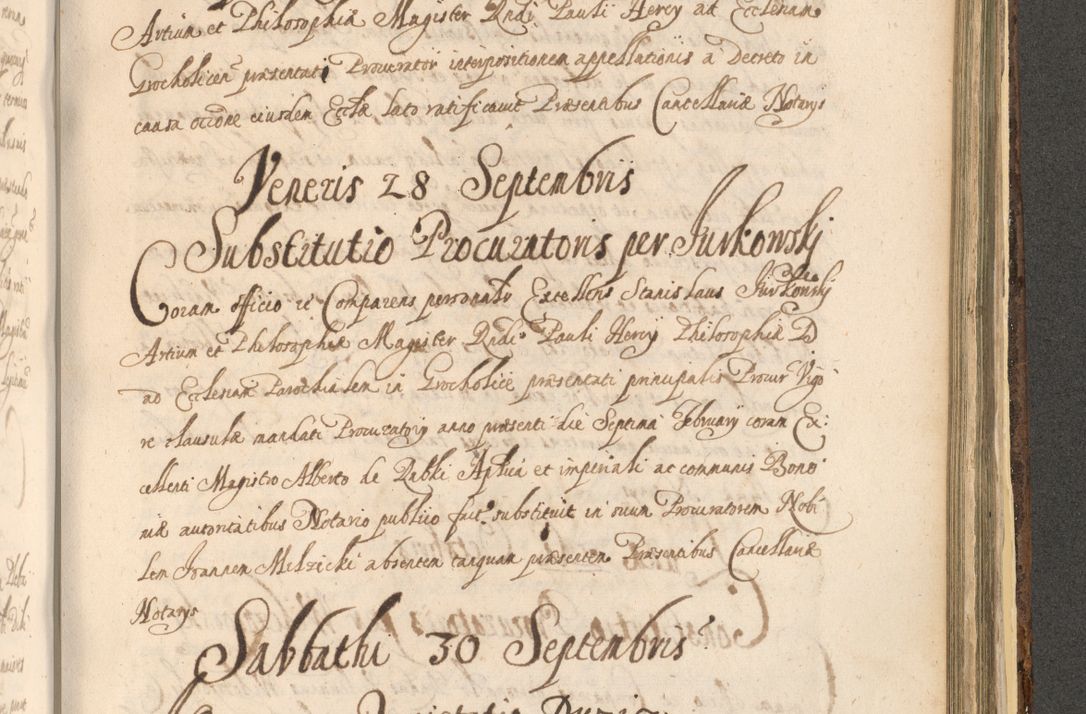 Artium et Philosophiæ Magister Rndi Pauli Hercy ad Ecclesiam
Grocholicen præsentati Procurator interpositionem appellationis a Decreto in
causa ocione eiusdem Ecclæ lato ratificavit Præsentibus Cancellariæ Notarys
Veneris 28 Septembris
Substitutio Procuratoris per Jurkowskj
Coram officio rê Comparens personalr Excellens Stanislaus Jurkowskj
Artium et Philosophiæ Magister Rndi Pauli Hercy Philosophiæ D
ad Ecclesiam Parochialem in Grocholice præsentati principalis Procur Vigo
re clausulæ mandati Procuratorij anno præsenti die Septima February coram Ex:
cellenti Magistro Alberto de Rabki Aplica et imperiali ac communis Bono
niæ autoritatibus Notario publico fact substituit in suum Procuratorem Nobi
lem Joannem Milzicki absentem tanquam præsentem Præsentibus Cancellariæ
Notarys
Sabbathi 30 Septembris